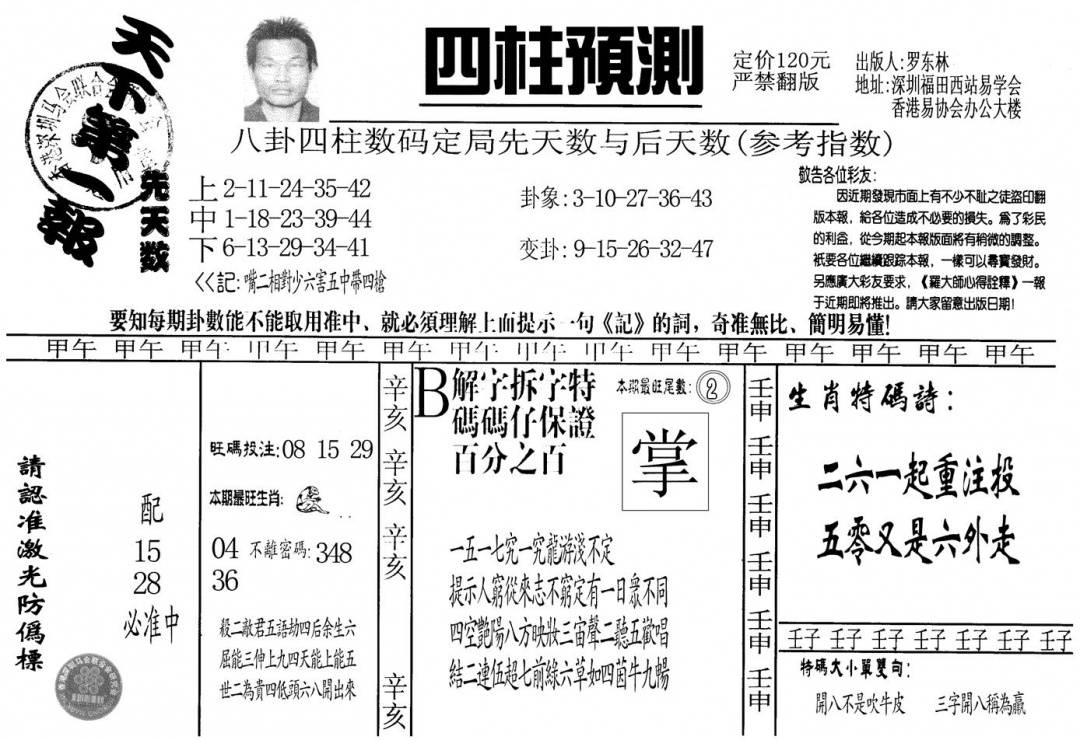 天下第一報
四柱預測
定价120元
严禁翻版
出版人:罗东林
地址:深圳福田西站易学会
香港易协会办公大楼
八卦四柱数码定局先天数与后天数(参考指数)
先天数
上2-11-24-35-42
中1-18-23-39-44
下6-13-29-34-41
<<記:嘴二相對少六害五中帶四槍
卦象:3-10-27-36-43
变卦:9-15-26-32-47
敬告各位彩友:
因近期發現市面上有不少不耻之徒盜印翻
版本報，給各位造成不必要的損失。為了彩民
的利益，從今期起本報版面將有稍微的調整。
祇要各位繼續跟踪本報，一樣可以尋寶發財。
另應廣大彩友要求，《羅大師心得詮釋》一報
于近期即將推出。請大家留意出版日期!
要知每期卦數能不能取用准中、就必須理解上面提示一句《記》的詞，奇准無比、簡明易懂!
甲午 甲午 甲午 甲午 甲午 甲午 甲午 甲午 甲午 甲午 甲午 甲午 甲午 甲午 甲午
請認准激光防僞標
配
15
28
必准中
旺碼投注:08 15 29
本期最旺生肖:
04 不離密碼:348
36
殺二敵君五語劫四后余生六
屈能三伸上九四天能上能五
世二為貴四低頭六八開出來
辛亥 辛亥 辛亥 辛亥
B解字拆字特
碼碼仔保證
百分之百
本期最旺尾數:②
掌
一五一七究一究龍游淺不定
提示人窮從來志不窮定有一日眾不同
四空艷陽八方映妝三宙聲二聽五歡唱
結二連伍超七前綠六草如四茵牛九暢
壬申 壬申 壬申 壬申 壬申 壬申
生肖特碼詩:
二六一起重注投
五零又是六外走
壬子 壬子 壬子 壬子 壬子 壬子 壬子
特碼大小單雙句:
開八不是吹牛皮 三字開八稱為贏